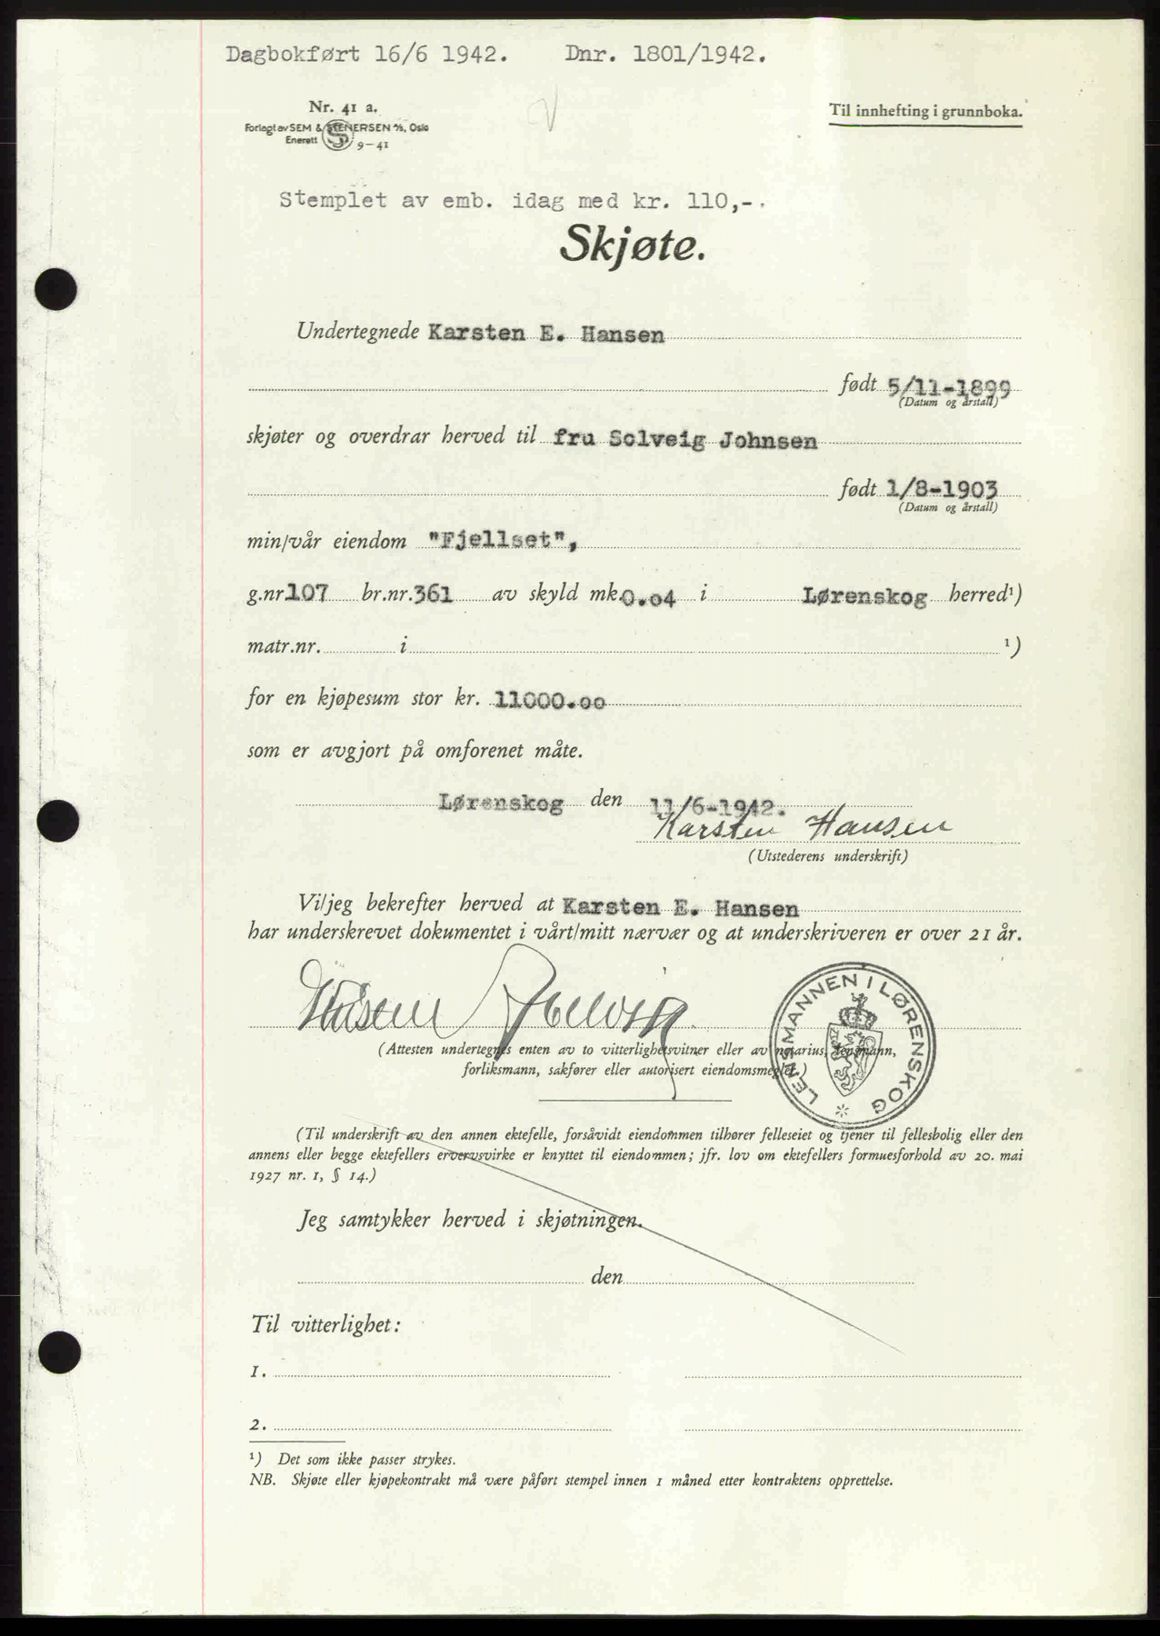 Dagbokført 16/6 1942. Dnr. 1801/1942.
Nr. 41 a.
Forlagt av SEM & STENERSEN A/S, Oslo
Enerett 9-41
Til innhefting i grunnboka.
Stemplet av emb. idag med kr. 110,-.
Skjøte.
Undertegnede Karsten E. Hansen
født 5/11-1899
(Datum og årstall)
skjøter og overdrar herved til fru Solveig Johnsen
født 1/8-1903
(Datum og årstall)
min/vår eiendom "Fjellset",
g.nr. 107 br.nr. 361 av skyld mk. 0.04 i Lørenskog herred¹)
matr.nr. i ¹)
for en kjøpesum stor kr. 11000.00
som er avgjort på omforenet måte.
Lørenskog den 11/6-1942.
Karsten Hansen
(Utstederens underskrift)
Vi/jeg bekrefter herved at Karsten E. Hansen
har underskrevet dokumentet i vårt/mitt nærvær og at underskriveren er over 21 år.
LENSMANNEN I LØRENSKOG
(Attesten undertegnes enten av to vitterlighetsvitner eller av notarius, lensmann,
forliksmann, sakfører eller autorisert eiendomsmegler.)
(Til underskrift av den annen ektefelle, forsåvidt eiendommen tilhører felleseiet og tjener til fellesbolig eller den
annens eller begge ektefellers ervervsvirke er knyttet til eiendommen; jfr. lov om ektefellers formuesforhold av 20. mai
1927 nr. 1, § 14.)
Jeg samtykker herved i skjøtningen.
den
Til vitterlighet:
1.
2.
¹) Det som ikke passer strykes.
NB. Skjøte eller kjøpekontrakt må være påført stempel innen 1 måned etter kontraktens opprettelse.